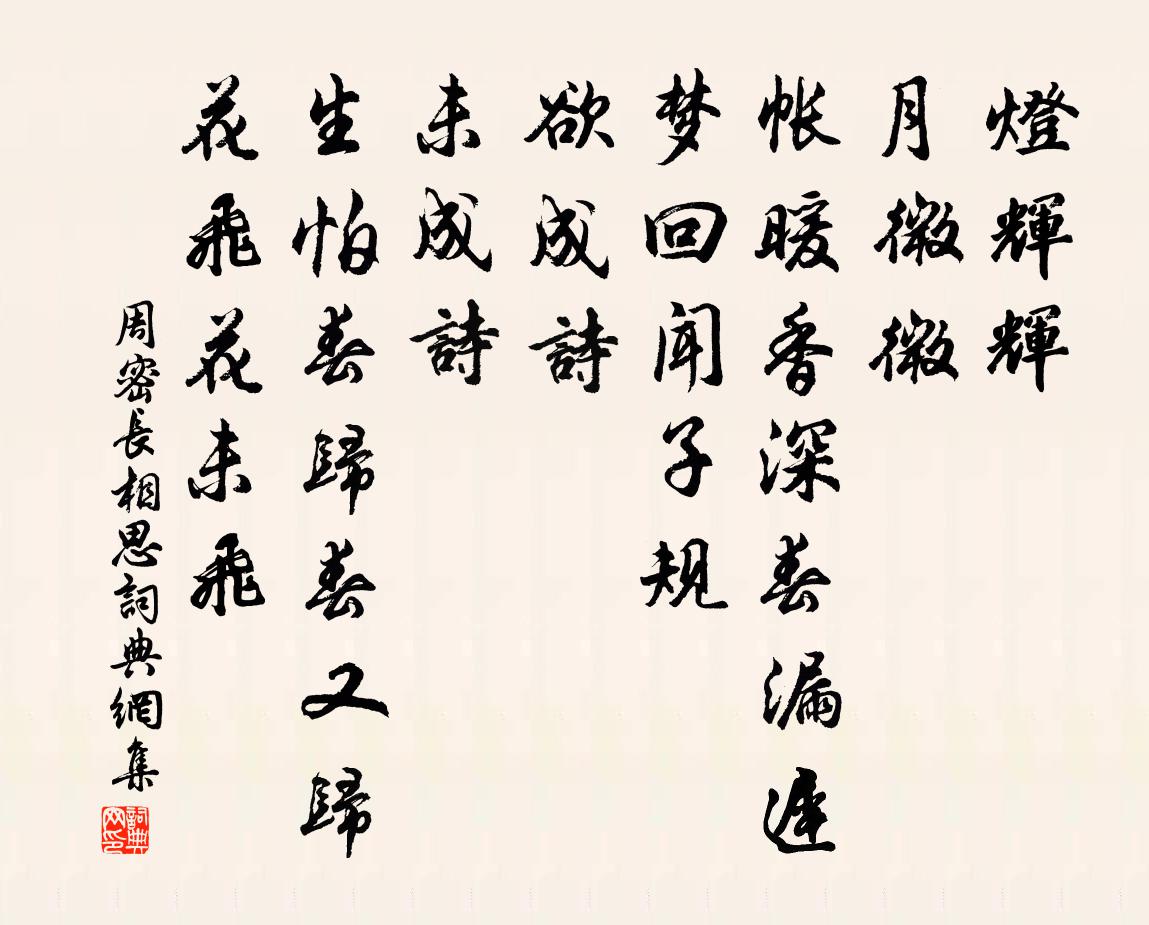 燈輝輝
月微微
帐暖香深春漏遲
梦回闻子规
欲成詩
未成詩
生怕春歸春又歸
花飛花未飛
周密長相思詞典網集
詞典网印